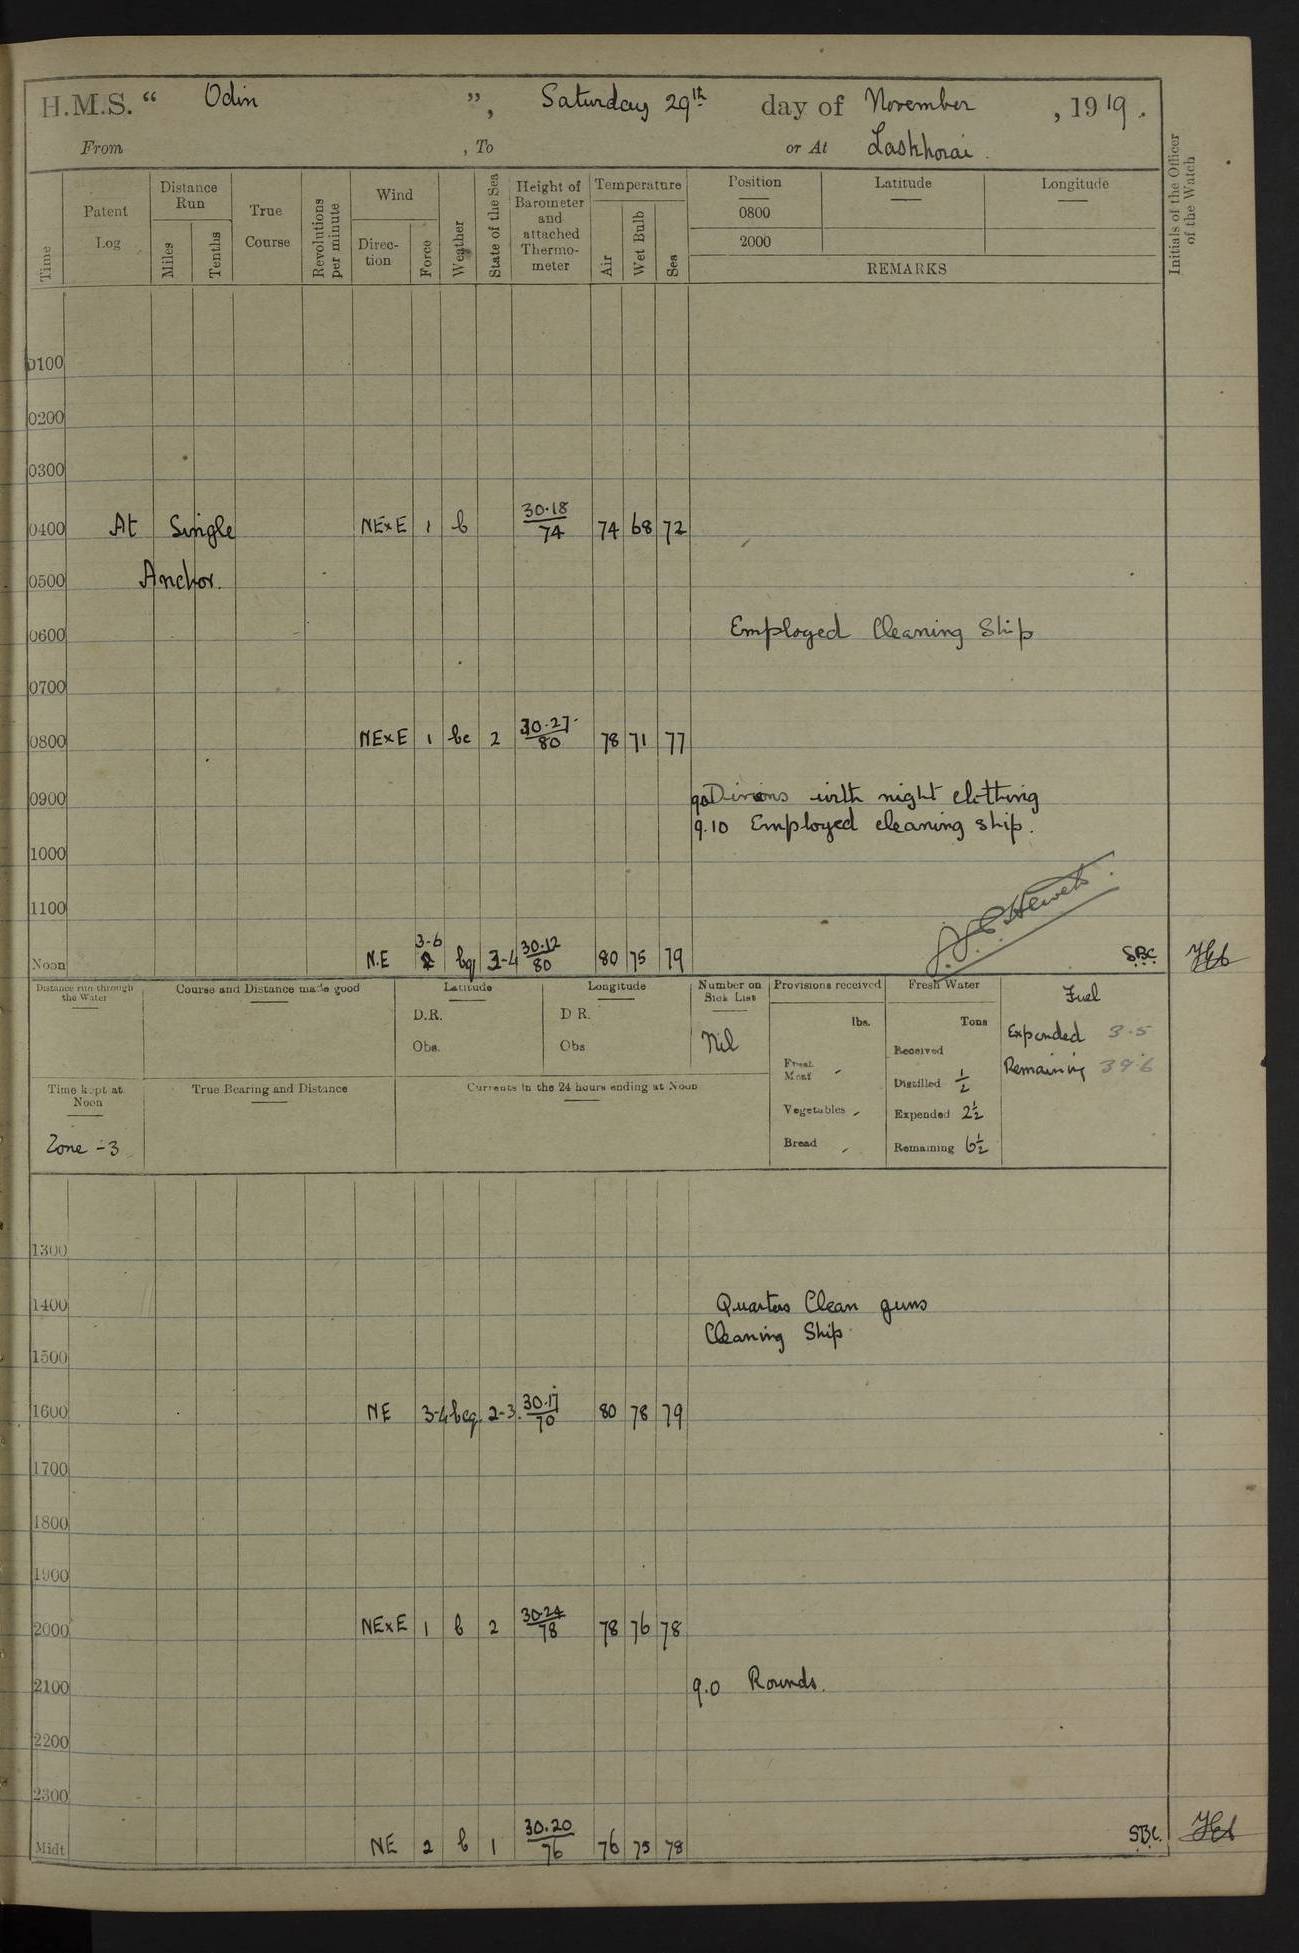 H.M.S. “ Odin ”, Saturday 29th day of November , 1919.
From , To or At Laskhorai.
Time
Patent Log
Distance Run
Miles
Tenths
True Course
Revolutions per minute
Wind
Direc-tion
Force
Weather
State of the Sea
Height of Barometer and attached Thermo-meter
Temperature
Air
Wet Bulb
Sea
Position
0800
2000
Latitude
Longitude
REMARKS
Initials of the Officer of the Watch
0100
0200
0300
0400 At Single NExE 1 b 30.18/74 74 68 72
0500 Anchor.
0600 Employed Cleaning Ship
0700
0800 NExE 1 bc 2 30.27/80 78 71 77
0900 9.0 Divisions with night clothing
9.10 Employed cleaning ship.
1000
1100
Noon N.E 3-6 bq 3-4 30.12/80 80 75 79 S.B.C.
Distance run through the Water
Course and Distance made good
Latitude
D.R.
Obs.
Longitude
D R.
Obs
Number on Sick List
Nil
Provisions received
lbs.
Fresh Meat
Vegetables
Bread
Fresh Water
Tons
Received
Distilled 1/2
Expended 2 1/2
Remaining 6 1/2
Fuel
Expended 3.5
Remaining 39.6
Time kept at Noon
Zone -3
True Bearing and Distance
Currents in the 24 hours ending at Noon
1300
1400 Quarters Clean guns
Cleaning Ship
1500
1600 NE 3-4 bcq. 2-3. 30.17/70 80 78 79
1700
1800
1900
2000 NExE 1 b 2 30.24/78 78 76 78
2100 9.0 Rounds.
2200
2300
Midt NE 2 b 1 30.20/76 76 75 78 S.B.C.